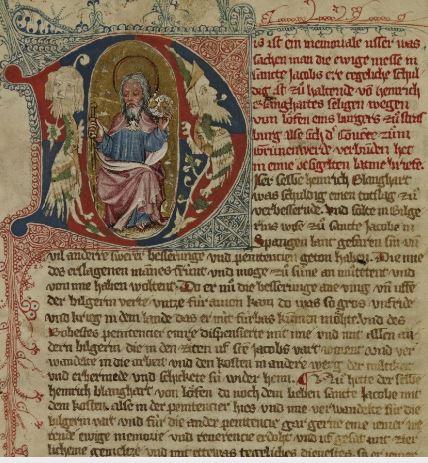 is ist ein memoriale uffer was
sachen man die ewige messe in
sancte Jacobs ere tegeliche schul
dig ist zů haltende von heinrich
Blanghartes seligen wegen
von lofen eins burgers zů stras
burg Alse sich der stifter zům
Grůnenwerde verbunden het
in eime besigelten latine briefe
Der selbe heinrich Blanghart
was schuldig eines totslag zů
verbesserende und solte in bilge
rins wise zů sancte Jacobe in
Spangen lant gefaren sin und
vil andere swere besserunge und penitencien geton haben Die ime
des erslagenen mannes frunt und moge zů sůne an můttent und
von ime haben woltent Do er nů die besserunge ane ving und uffe
der bilgerin verte untze fur auion kam do was so gros unfride
und krieg in dem lande das er nút fúrbas kumen mohte und des
Bobestes penitencier einre dispensierte mit ime und mit allen an
dern bilgerin die in den ziten uf sant Jacobs vart woltent und ver
wandelte in die arbeit und den kosten in andere werg der
und erbermede und schickete sú wider heim Nů hette der selbe
heinrich blanghart von lofen do noch dem lieben sancte Jacobe mit
dem kosten alse in der penitencier hies und ime verwandelte fúr die
bilgerin vart und fúr die ander penitencie gar gerne eine iemer we
rende ewige memorie und reverencie erdoht und uf gesat mit zier
licheme gemelze und mit ettewas tegeliches dienestes so er iemer